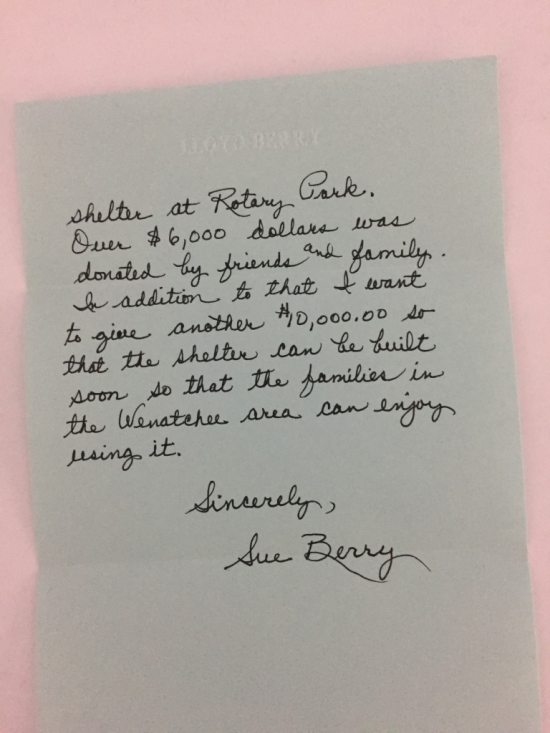 shelter at Rotary Park.
Over $6,000 dollars was
donated by friends and family.
In addition to that I want
to give another $10,000.00 so
that the shelter can be built
soon so that the families in
the Wenatchee area can enjoy
using it.
Sincerely,
Sue Berry